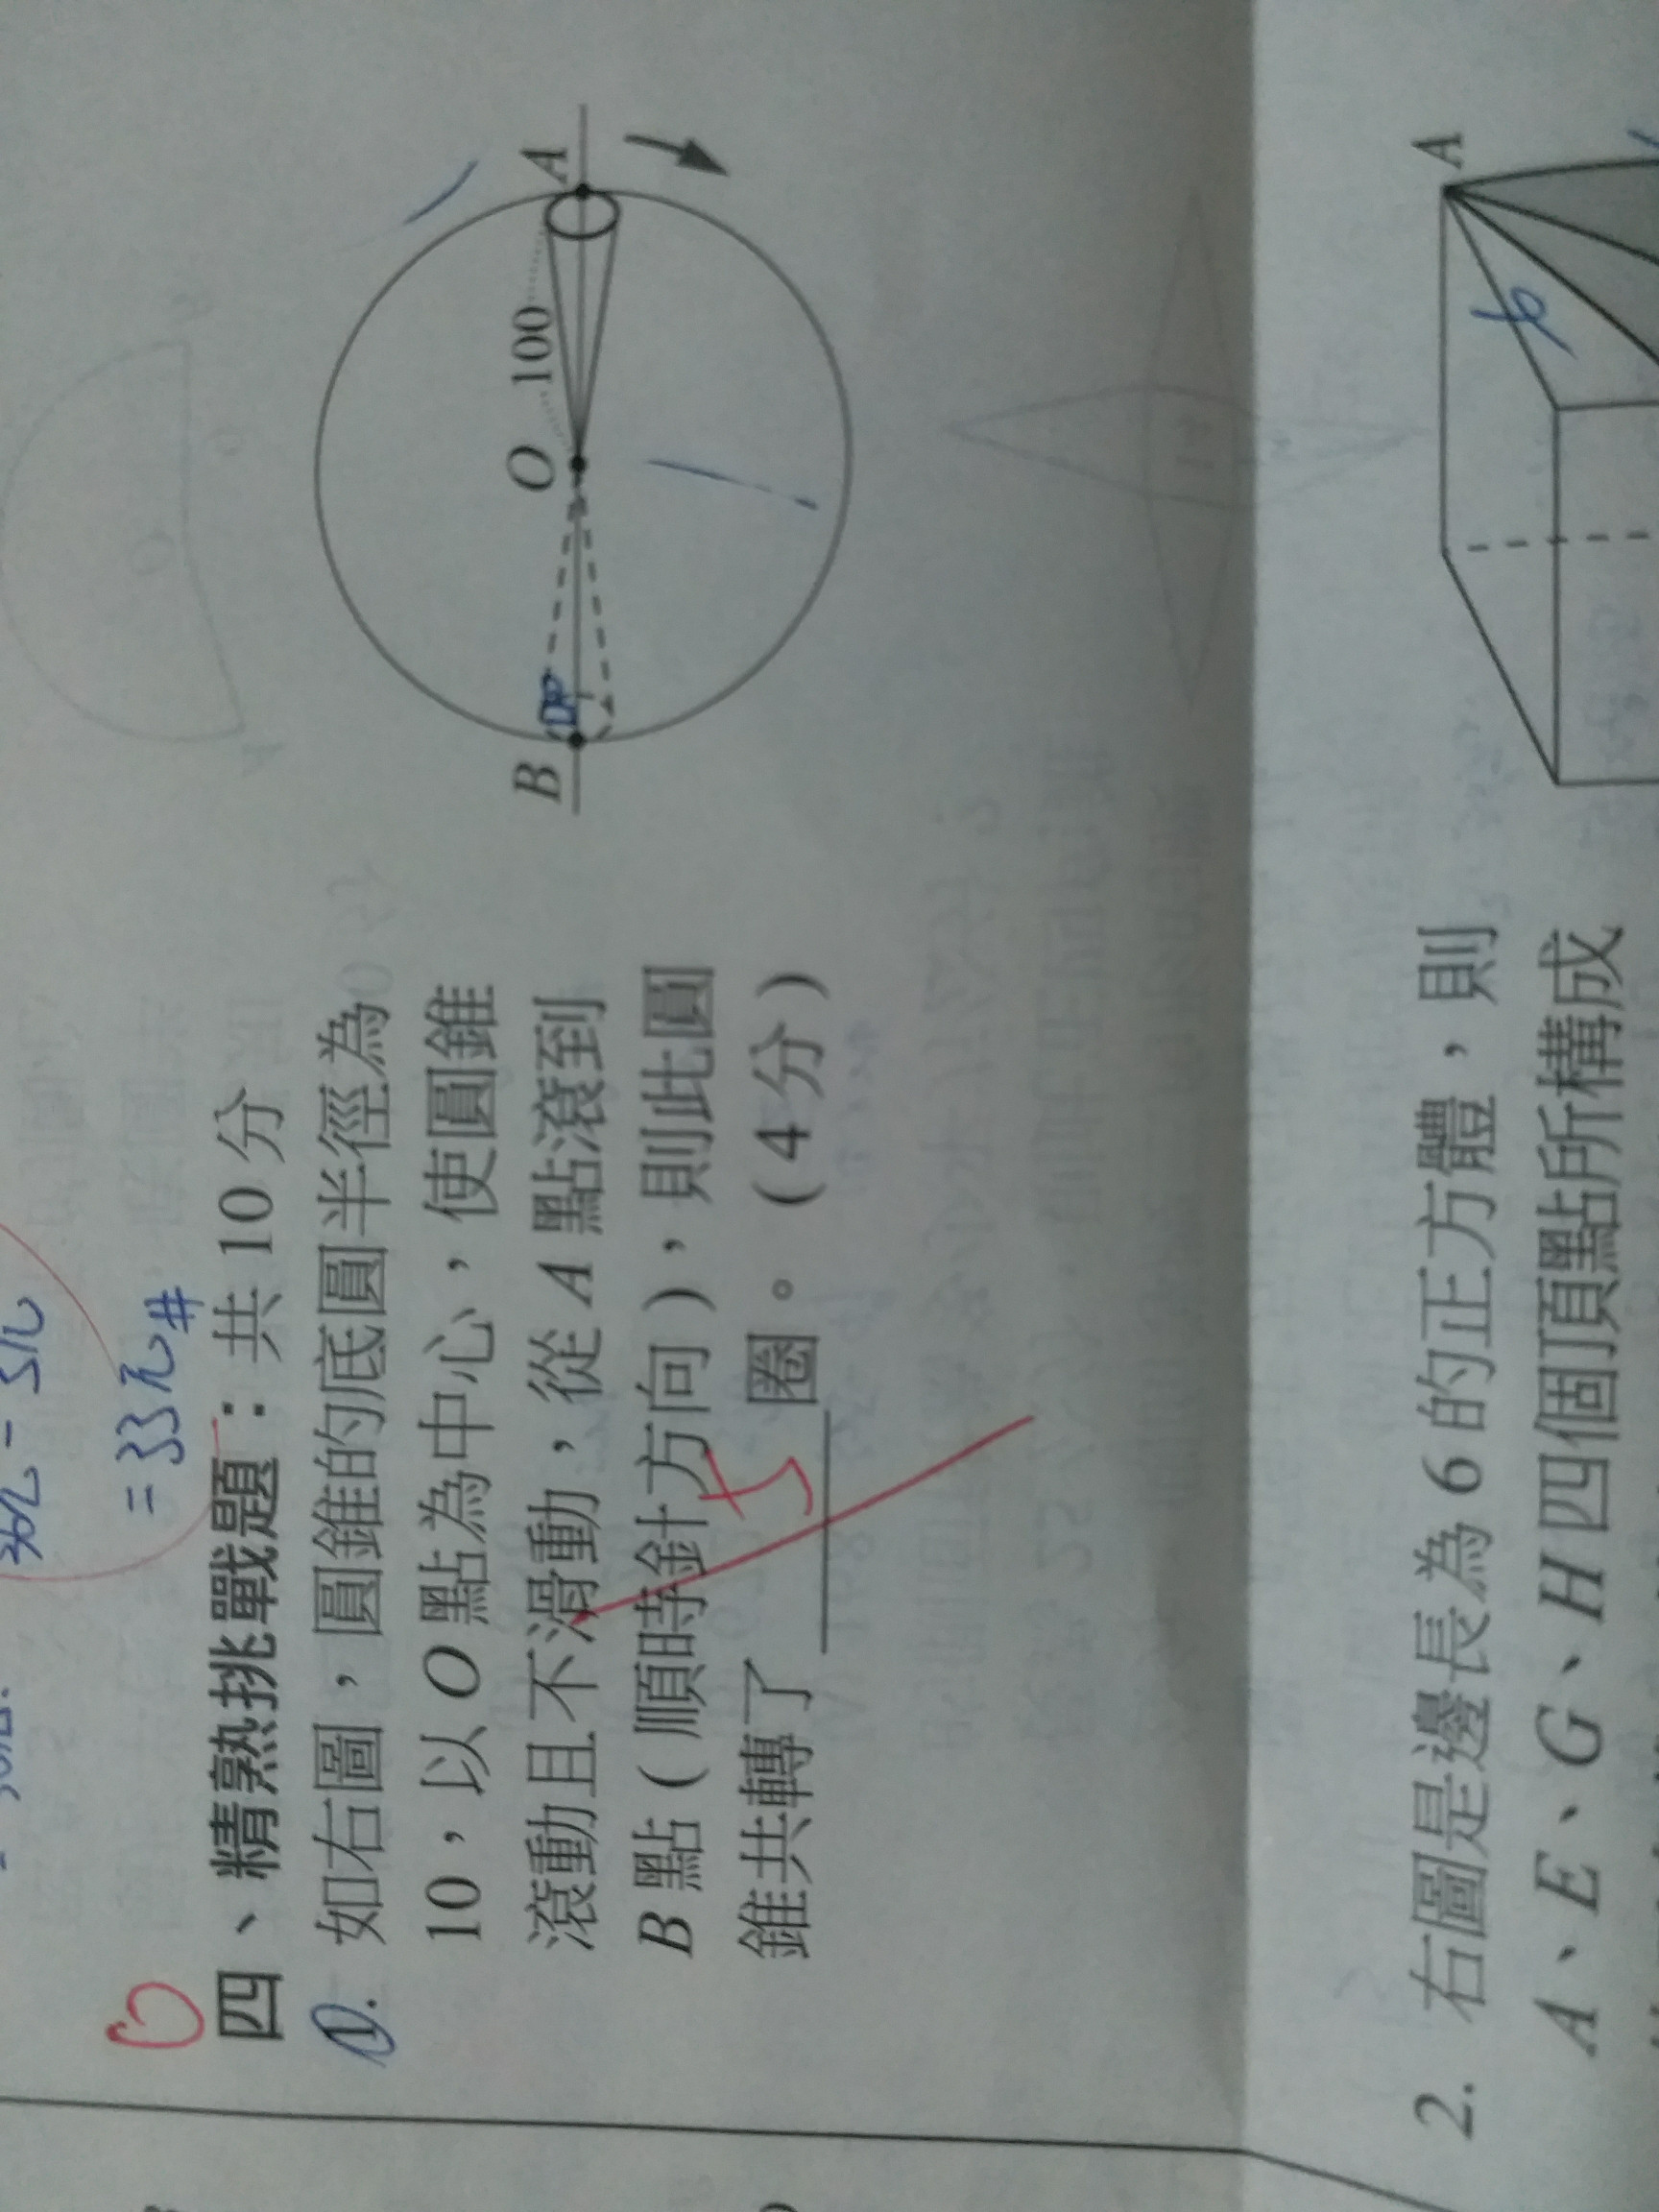 = 33元#
四、精熟挑戰題：共 10 分
1. 如右圖，圓錐的底圓半徑為
10，以 O 點為中心，使圓錐
滾動且不滑動，從 A 點滾到
B 點（順時針方向），則此圓
錐共轉了 5 圈。（4 分）
B
O
100
A
2. 右圖是邊長為 6 的正方體，則
A、E、G、H 四個頂點所構成
A
6